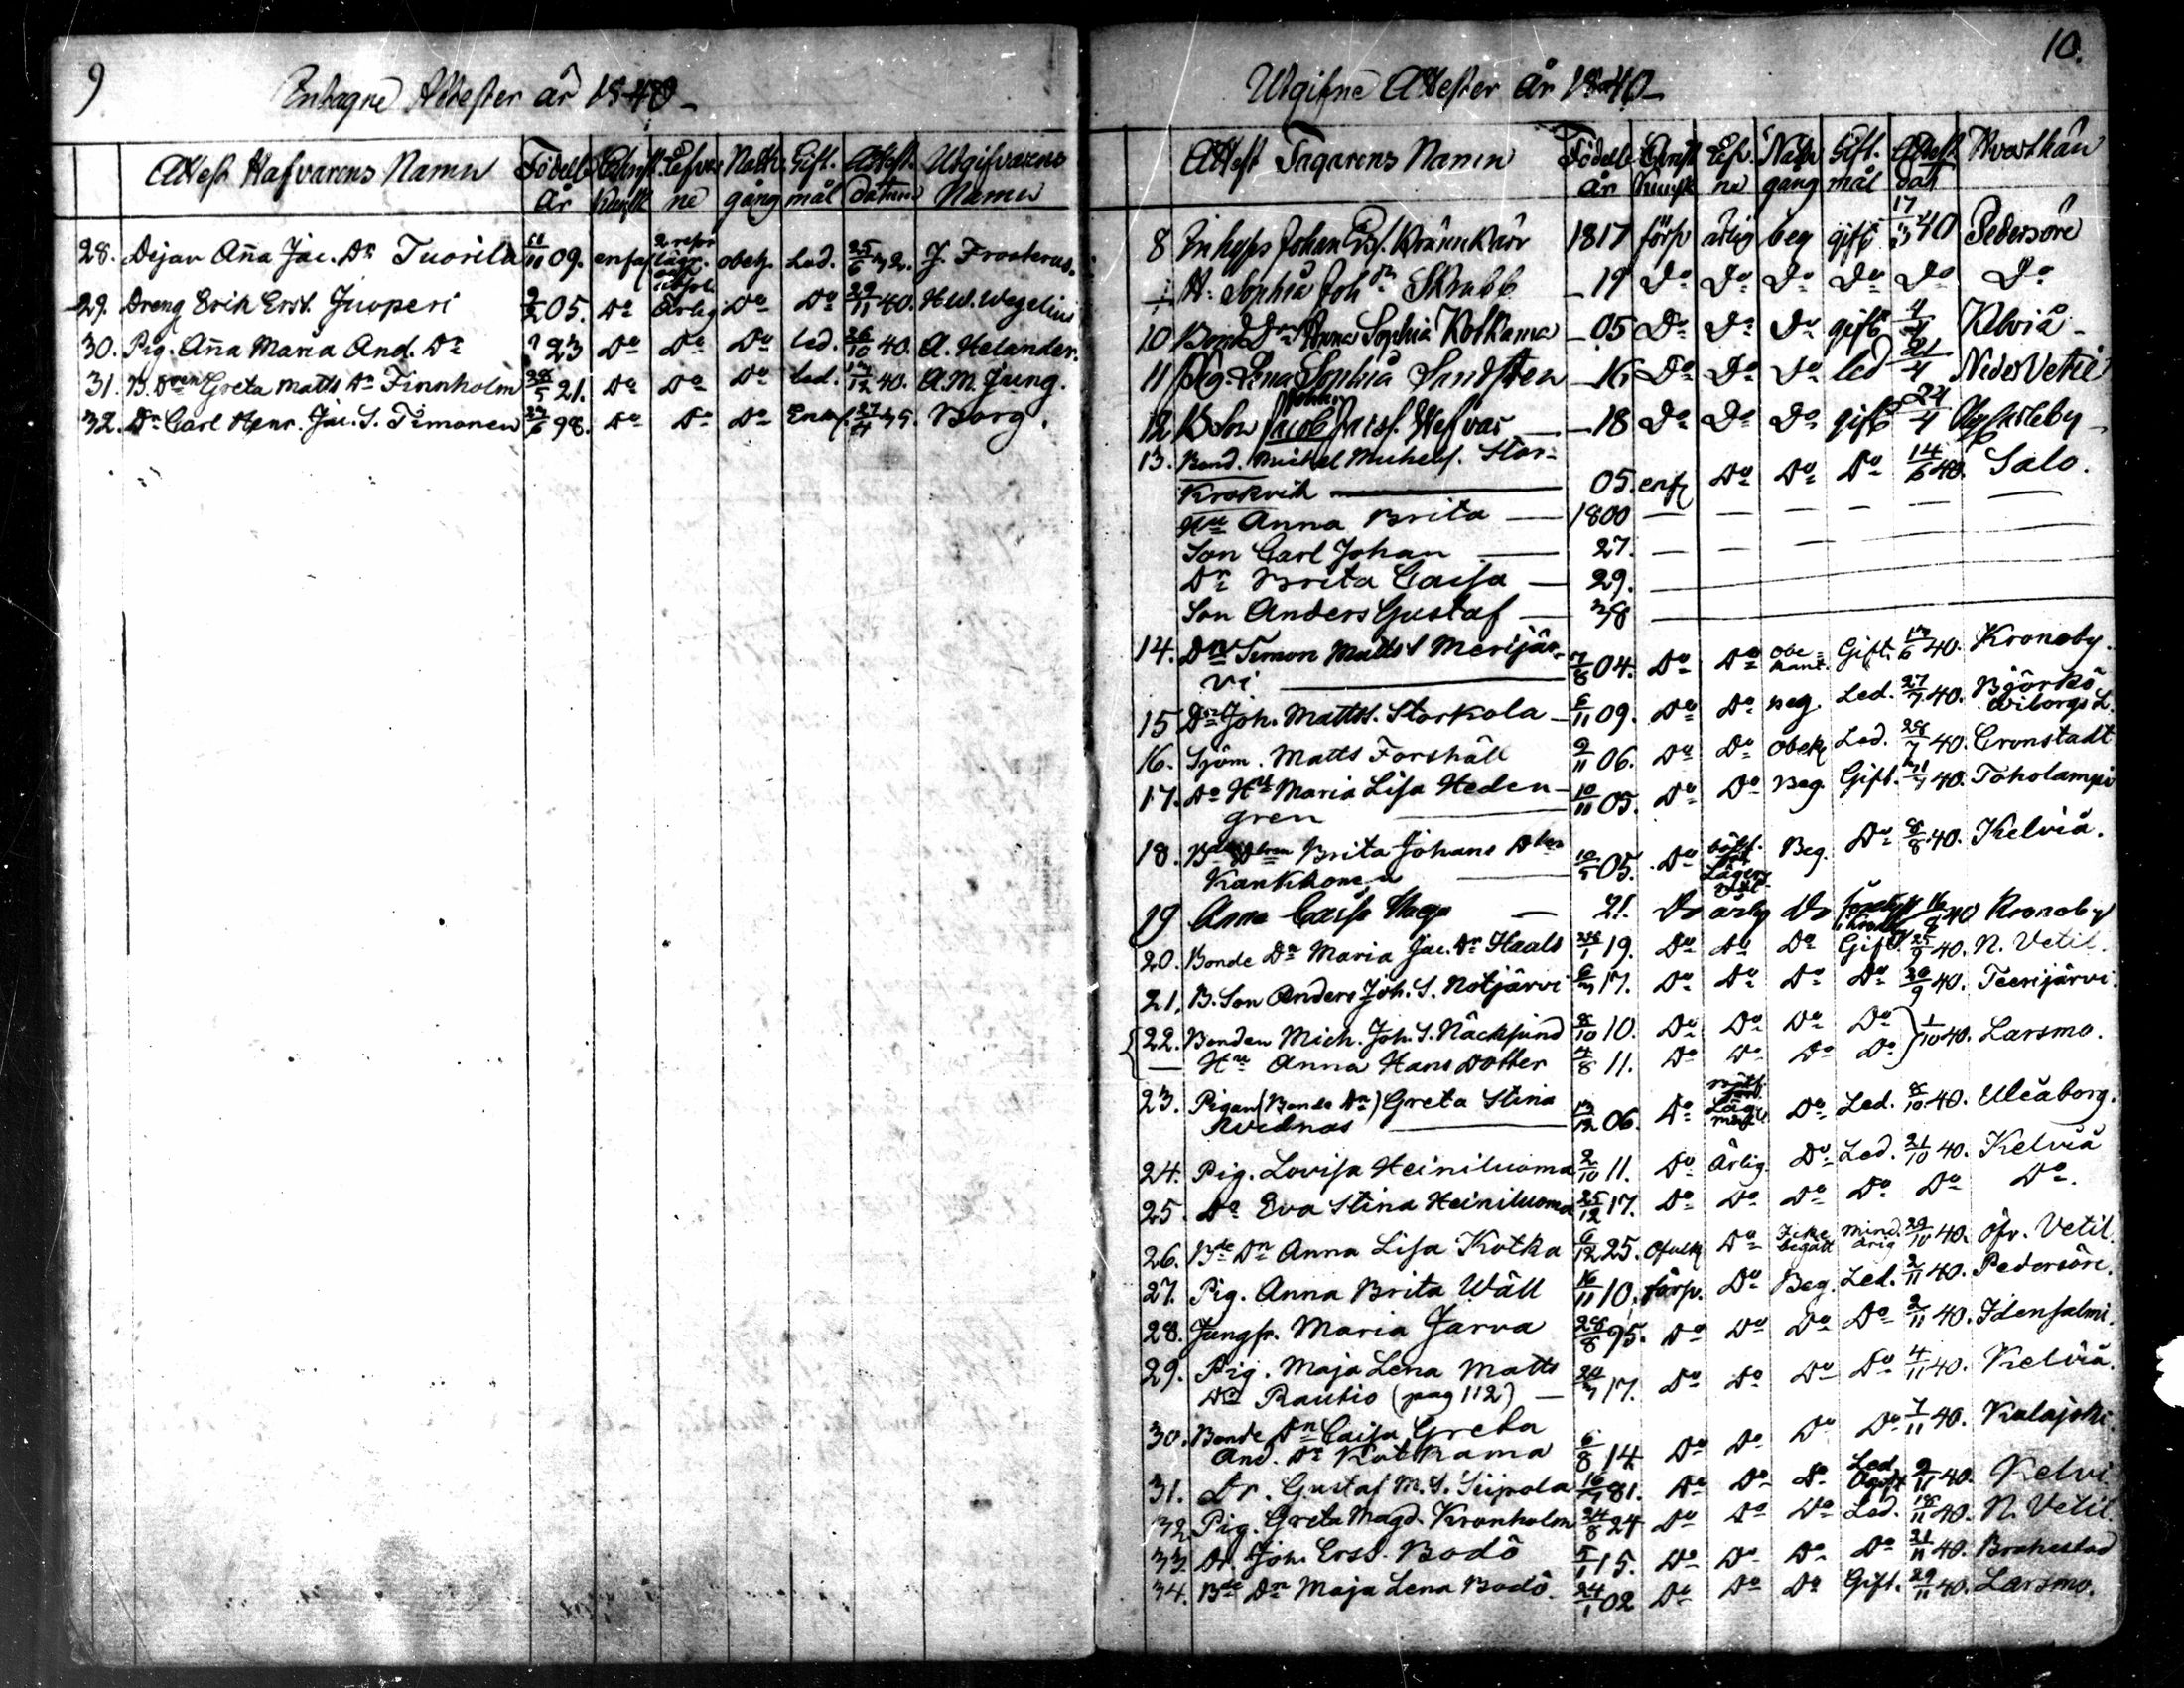 9
Entagne Attester år 1840
Attest Hafvarens Namn Födelse År Christ. Kunsk. Lefver ne Nattv. gång Gift. mål Attest. datum Utgifvarens Namn
28. Dejan Aña Jac. Dr Tuorila 11/11 09. enfal lägr. obeh. Led. 25/6 J. Frosterus.
29. Dreng Erik Erss. Juoperi 2/2 05. Do Ärlig Do Do 29/11 40. H.W. Wegelius
30. Pig. Aña Maria And. Dr 23 Do Do Do led. 26/10 40. A. Helander.
31. B. Dren Greta Matts Dr Finnholm 28/5 21. Do Do Do led. 12 40. A.M. Jung.
32. Dr Carl Henr. Jac. S. Timonen 98. Do Do Do Borg.
10.
Utgifne Attester År 1840
Attest Tagarens Namn Födelse år Christ. Kunsk. Lefv. ne Nattv gång Gift. mål Attest dat Hvarthän
8 Inhyss Johan Brännkärr 1817 försv ärlig beg gift 17/3 40 Pedersöre
H. Sophia Joh Dr Skrabb – 19 Do Do Do Do Do Do
10 Bond Dr Anna Sophia Kotkama – 05 Do Do Do gift 4/4 Kelviå
11 Pig. Lena Sophia Sandsten – 16 Do Do Do led 21/4 Neder Vetil
12 B Son Jacob Jacss. Wefvar – 18 Do Do Do gift 24/4 Nykarleby
13. Bond. Michel Michelss. Stor-
Krokvik 05. enf Do Do Do 14/6 40. Salo.
Hu Anna Brita – 1800 – – – – –
Son Carl Johan – 27. – – –
Dr Brita Caisa – 29.
Son Anders Gustaf – 38
14. Dr Simon Matts S Merijär-
vi 7/8 04. Do Do obe- kant. Gift. 6 40. Kronoby.
15 Dr Joh. Mattss. Storkola – 6/11 09. Do Do Beg. Led. 27/7 40. Björkö Wiborgs L.
16. Sjöm. Matts Forshäll 9/11 06. Do Do Obek Led. 28/7 40. Cronstadt
17. Do Hu Maria Lisa Heden-
gren 10/11 05. Do Do Beg. Gift. 40. Toholampi
18. Bde Dren Brita Johans Dter
Kankkonen 05. Do Beg. Do 8/8 40. Kelviå.
19 Anna Caisa – 21. Do ärlig Do 16/9 40 Kronoby
20. Bonde Dr Maria Jac. Dr Haals 28/1 19. Do Do Do Gift. 25/9 40. N. Vetil.
21. B. Son Anders Joh. S. Notjärvi 17. Do Do Do Do 26/9 40. Teerijärvi.
22. Bonden Mich. Joh. S. Näcksund 8/10 10. Do Do Do Do 1/10 40. Larsmo.
– Hu Anna Hans Dotter 4/8 11. Do Do Do Do
23. Pigan (Bonde Dr) Greta Stina
Hvidnas 13/12 06. Do Do Led. 8/10 40. Uleåborg.
24. Pig. Lovisa Heiniluoma 2/10 11. Do Ärlig. Do Led. 21/10 40. Kelviå
25. Do Eva Stina Heiniluoma 25/12 17. Do Do Do Do Do Do.
26. Bde Dr Anna Lisa Kotka 6/12 25. Do Icke begått Mind. ärig 29/10 40. Öfv. Vetil.
27. Pig. Anna Brita Wäll 16/11 10. försv. Do Beg. Led. 2/11 40. Pedersöre.
28. Jungfr. Maria Jarva 28/8 95. Do Do Do Do 2/11 40. Idensalmi.
29. Pig. Maja Lena Matts
Dr Rautio (pag 112) – 17. Do Do Do Do 4/11 40. Kelviå.
30. Bonde Dr Caisa Greta
And. Dr Kotkama 6/8 14 Do Do Do Do 7/11 40. Kalajoki.
31. Dr. Gustaf M. S. Siipola 16 81. Do Do Do Led. Ogift 9/11 40. Kelvi
32 Pig. Greta Magd. Kronholm 24/8 24 Do Do Do Led. 18/11 40. N. Vetil
33. Dr Joh. Erss. Bodö 5/1 15. Do Do Do Do 21/11 40. Brahestad
34. Bde Dr Maja Lena Bodö 24/1 02 Do Do Do Gift. 29/11 40. Larsmo.